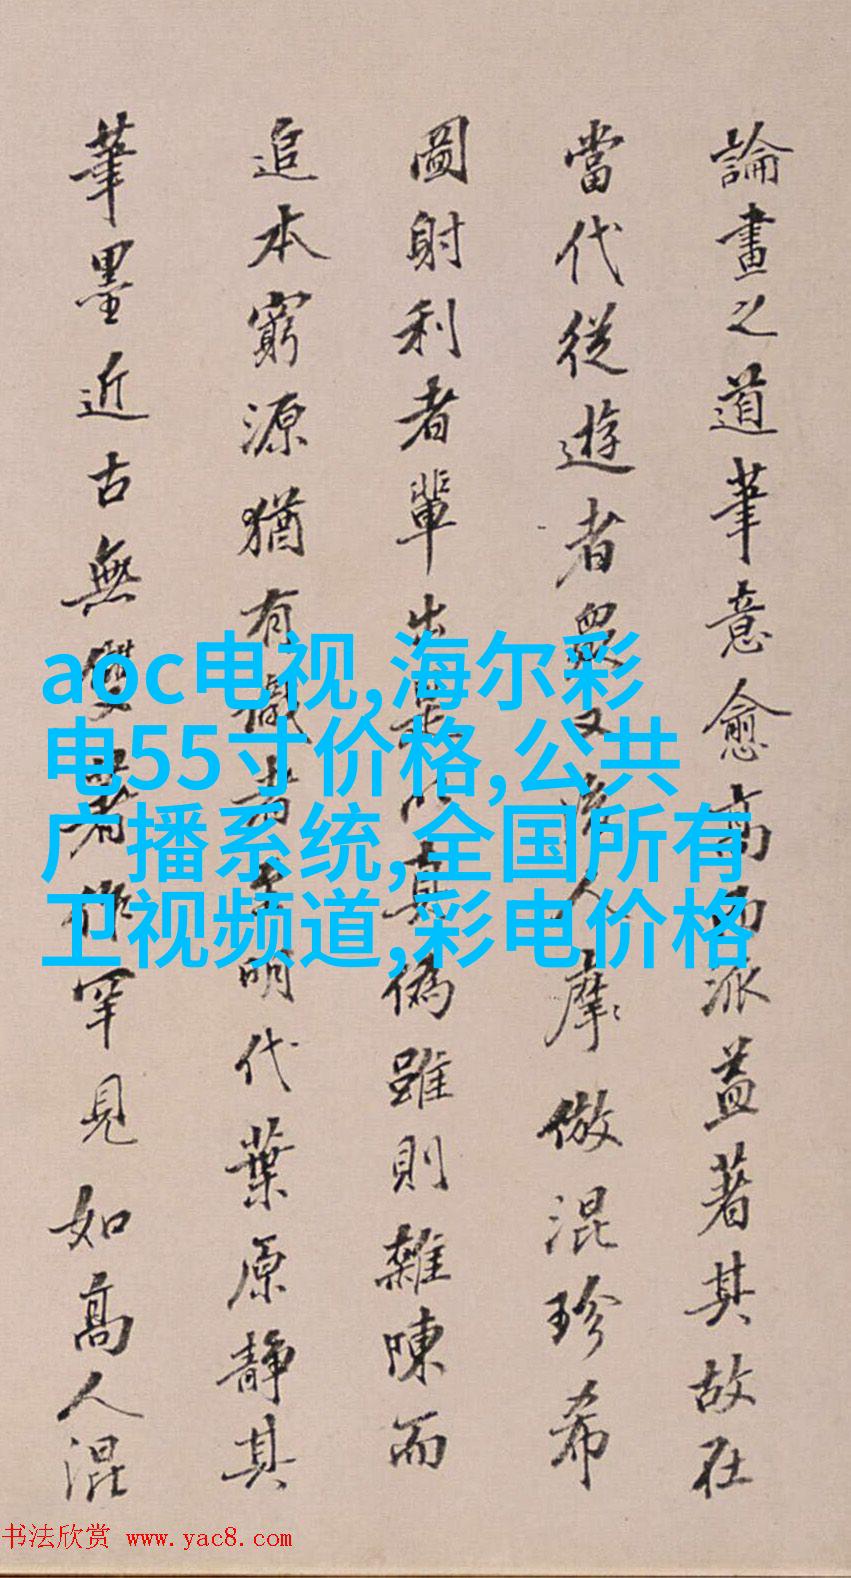 論畫之道筆意愈高而派益著其故在
當代從遊者眾又後人摩倣混珍希
圖射利者輩出是以真偽雖則雜陳而
追本窮源猶有識者明代葉原靜其
筆墨近古無雙著作罕見如高人混
aoc电视,海尔彩
电55寸价格,公共
广播系统,全国所有
卫视频道,彩电价格
书法欣赏 www.yac8.com